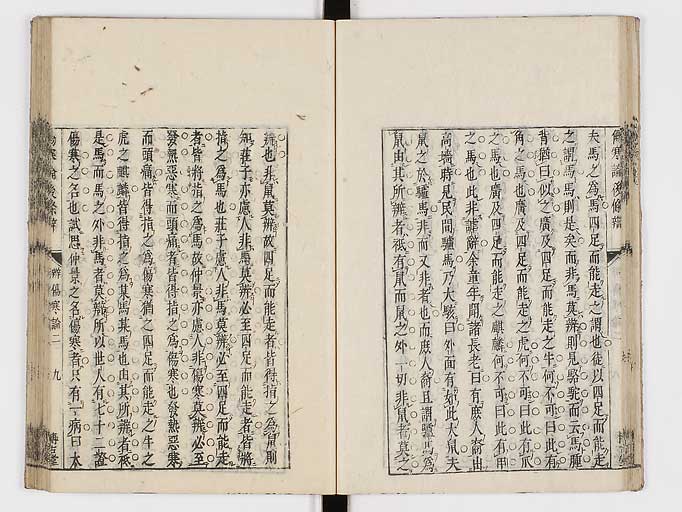 傷寒論後條辨
夫馬之為馬四足而能走之謂也徒以四足而能走
之謂馬馬則是矣而非馬莫辨則見駱駝而云馬腫
背猶曰以之廣及四足而能走之牛何不可曰此有
角之馬也廣及四足而能走之虎何不可曰此有爪
之馬也廣及四足而能走之麒麟何不可曰此有甲
之馬也此非謔辭余童年聞諸長老曰有庶人裔由
高墻時見民間驢馬乃大駭曰外面有如此大鼠夫
鼠之於驢馬非而又非者也而庶人裔且謂驢馬為
鼠由其所辨者祇有鼠而鼠之外一切非鼠者莫之
辨也非鼠莫辨故四足而能走者皆得指之為鼠則
知莊子亦慮人非馬莫辨必至四足而能走者皆將
指之為馬也莊子慮人非馬莫辨必至四足而能走
者皆將指之為馬故仲景亦慮人非傷寒莫辨必至
發熱惡寒而頭痛者皆得指之為傷寒也發熱惡寒
而頭痛皆得指之為傷寒猶之四足而能走之牛之
虎之麒麟皆得指之為某馬某馬也由其所辨者祇
是馬而馬之外非馬者莫辨所以世人有七十二證
傷寒之名也試思仲景之名傷寒者只有一病曰太
辨傷寒論二
九